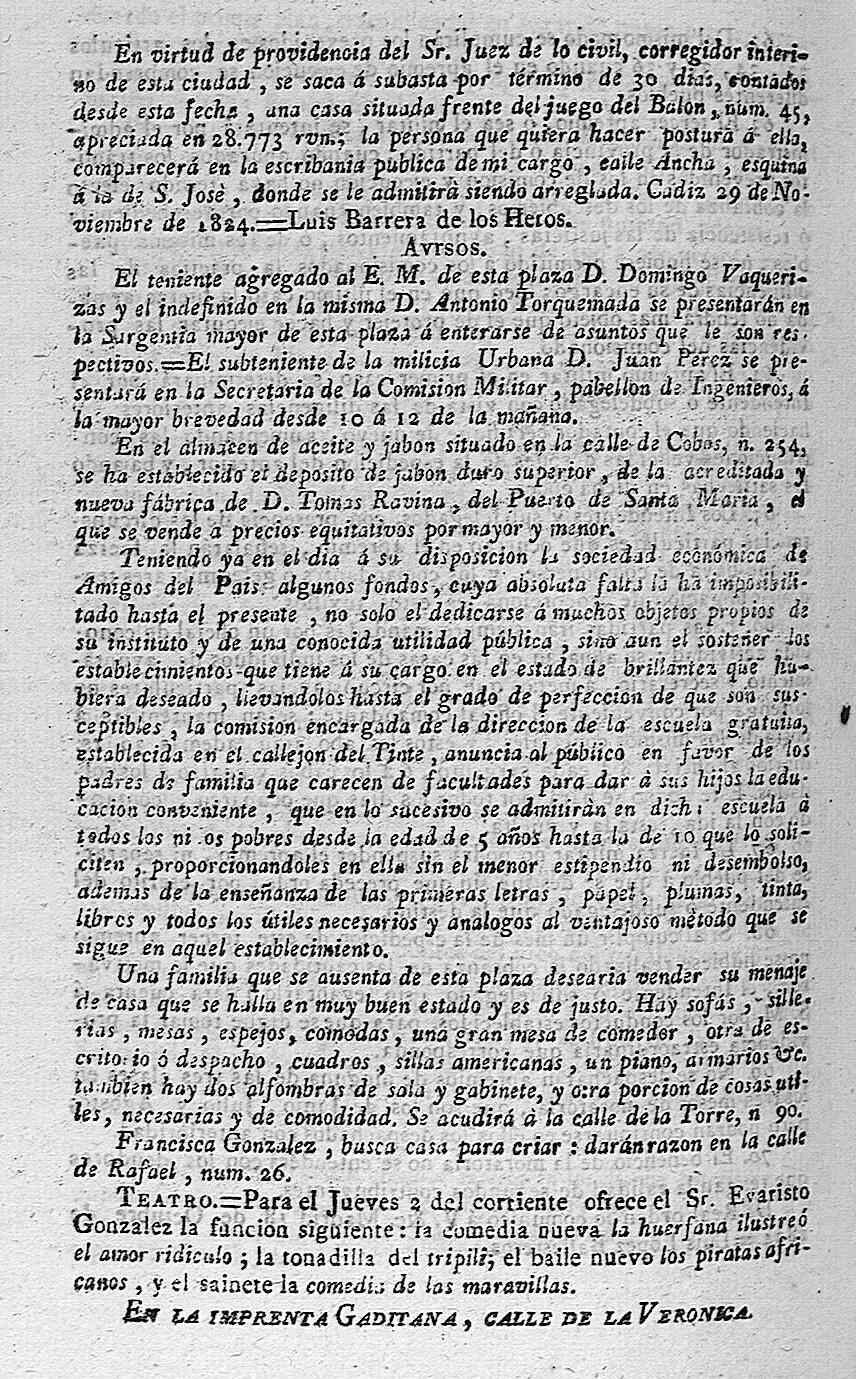 En virtud de providencia del Sr. Juez de lo civil, corregidor interi-
no de esta ciudad, se saca á subasta por término de 30 dias, contados
desde esta fecha, una casa situada frente del juego del Balon, núm. 45,
apreciada en 28.773 rvn.; la persona que quiera hacer postura á ella,
comparecerá en la escribania publica de mi cargo, calle Ancha, esquina
á la de S. Josè, donde se le admitirà siendo arreglada. Cadiz 29 de No-
viembre de 1824.=Luis Barrera de los Heros.
AVISOS.
El teniente agregado al E. M. de esta plaza D. Domingo Vaqueri-
zas y el indefinido en la misma D. Antonio Torquemada se presentarán en
la Sargentia mayor de esta plaza á enterarse de asuntos que le son res-
pectivos.=El subteniente de la milicia Urbana D. Juan Perez se pre-
sentará en la Secretaria de la Comision Militar, pabellon de Ingenieros, á
la mayor brevedad desde 10 á 12 de la mañana.
En el almacen de aceite y jabon situado en la calle de Cobos, n. 254,
se ha establecido el deposito de jabon duro superior, de la acreditada y
nueva fábrica de D. Tomas Ravina, del Puerto de Santa Maria, el
que se vende a precios equitativos por mayor y menor.
Teniendo ya en el dia á su disposicion la sociedad económica de
Amigos del Pais algunos fondos, cuya absoluta falta la ha imposibili-
tado hasta el presente, no solo el dedicarse á muchos objetos propios de
su instituto y de una conocida utilidad pública, sino aun el sostener los
establecimientos que tiene á su cargo en el estado de brillantez que hu-
biera deseado, llevandolos hasta el grado de perfeccion de que son sus-
ceptibles, la comision encargada de la direccion de la escuela gratuita,
establecida en el callejon del Tinte, anuncia al público en favor de los
padres de familia que carecen de facultades para dar à sus hijos la edu-
cacion conveniente, que en lo sucesivo se admitiràn en dich escuela à
todos los ni os pobres desde la edad de 5 años hasta la de 10 que lo soli-
citen, proporcionandoles en ella sin el menor estipendio ni desembolso,
ademas de la enseñanza de las primeras letras, papel, plumas, tinta,
libros y todos los útiles necesarios y analogos al ventajoso mètodo que se
sigue en aquel establecimiento.
Una familia que se ausenta de esta plaza desearia vender su menaje
de casa que se halla en muy buen estado y es de justo. Hay sofás, sille-
rias, mesas, espejos, cómodas, una gran mesa de comedor, otra de es-
critorio ó despacho, cuadros, sillas americanas, un piano, armarios &c.
tambien hay dos alfombras de sala y gabinete, y otra porcion de cosas uti-
les, necesarias y de comodidad. Se acudirá à la calle de la Torre, n 90.
Francisca Gonzalez, busca casa para criar: darán razon en la calle
de Rafael, num. 26.
TEATRO.=Para el Jueves 2 del corriente ofrece el Sr. Evaristo
Gonzalez la funcion siguiente: la comedia nueva la huerfana ilustre ó
el amor ridiculo; la tonadilla del tripili; el baile nuevo los piratas afri-
canos, y el sainete la comedia de las maravillas.
EN LA IMPRENTA GADITANA, CALLE DE LA VERONICA.